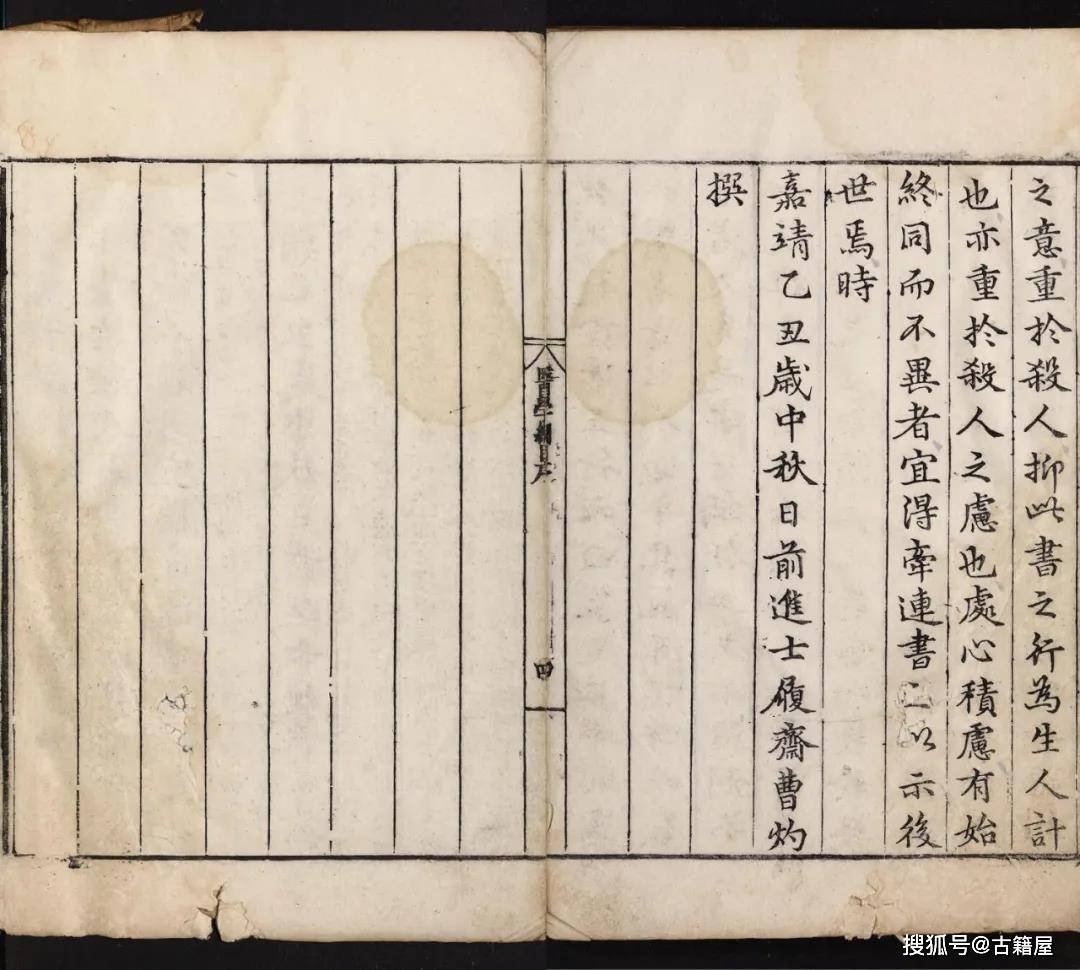 之意重於殺人抑此書之行為生人計
也亦重於殺人之慮也處心積慮有始
終同而不異者宜得牽連書之以示後
世焉時
嘉靖乙丑歲中秋日前進士履齋曹灼
撰
醫學綱目序
四
搜狐号@古籍屋